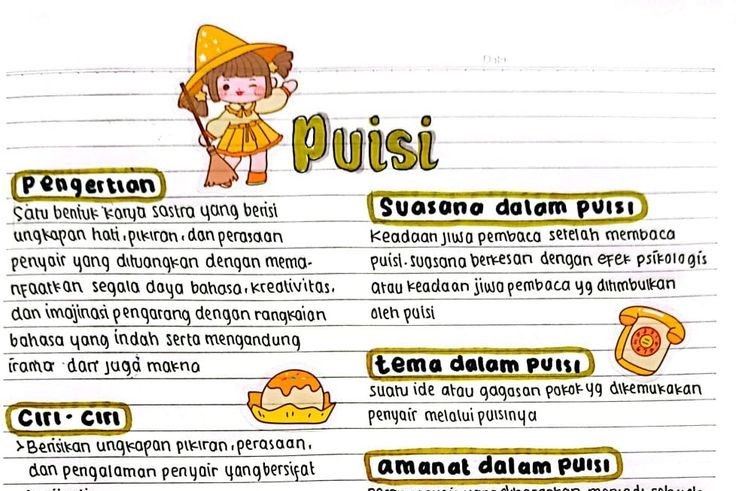 Date
Puisi
Pengertian
Satu bentuk karya sastra yang berisi
ungkapan hati, pikiran, dan perasaan
penyair yang dituangkan dengan mema-
nfaatkan segala daya bahasa, kreativitas,
dan imajinasi pengarang dengan rangkaian
bahasa yang indah serta mengandung
irama dan juga makna
Ciri - Ciri
>Berisikan ungkapan pikiran, perasaan,
dan pengalaman penyair yang bersifat
Suasana dalam puisi
Keadaan jiwa pembaca setelah membaca
puisi. suasana berkesan dengan efek psikologis
atau keadaan jiwa pembaca yg ditimbulkan
oleh puisi
tema dalam puisi
suatu ide atau gagasan pokok yg dikemukakan
penyair melalui puisinya
amanat dalam puisi